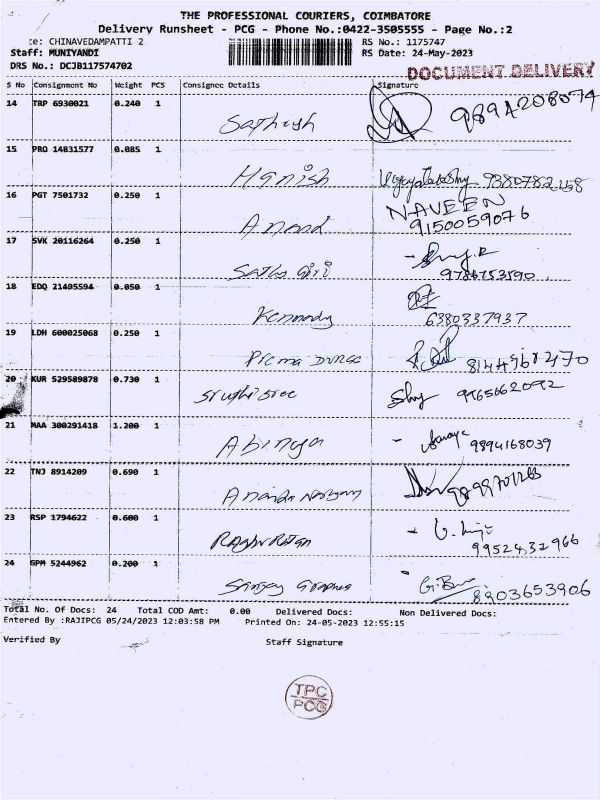 THE PROFESSIONAL COURIERS, COIMBATORE
Delivery Runsheet - PCG - Phone No.:0422-3505555 - Page No.:2
ce: CHINAVEDAMPATTI 2 RS No.: 1175747
Staff: MUNIYANDI RS Date: 24-May-2023
DRS No.: DCJB117574702 DOCUMENT DELIVERY
S No Consignment No Weight PCS Consignee Details Signature
14 TRP 6930021 0.240 1
Sathish 9894208074
15 PRO 14831577 0.085 1
Manish 9380782158
16 PGT 7501732 0.250 1 NAVEEN
Anand 9150059076
17 SVK 20116264 0.250 1
Sathis Giri
18 EDQ 21495594 0.050 1
Kennady 6380337937
19 LDH 600025068 0.250 1
20 KUR 529589878 0.730 1
21 MAA 300291418 1.200 1
Abinaya 9894168039
22 TNJ 8914209 0.690 1
23 RSP 1794622 0.600 1
9952432966
24 GPM 5244962 0.200 1
8903653906
Total No. Of Docs: 24 Total COD Amt: 0.00 Delivered Docs: Non Delivered Docs:
Entered By :RAJIPCG 05/24/2023 12:03:58 PM Printed On: 24-05-2023 12:55:15
Verified By Staff Signature
TPC
PCG